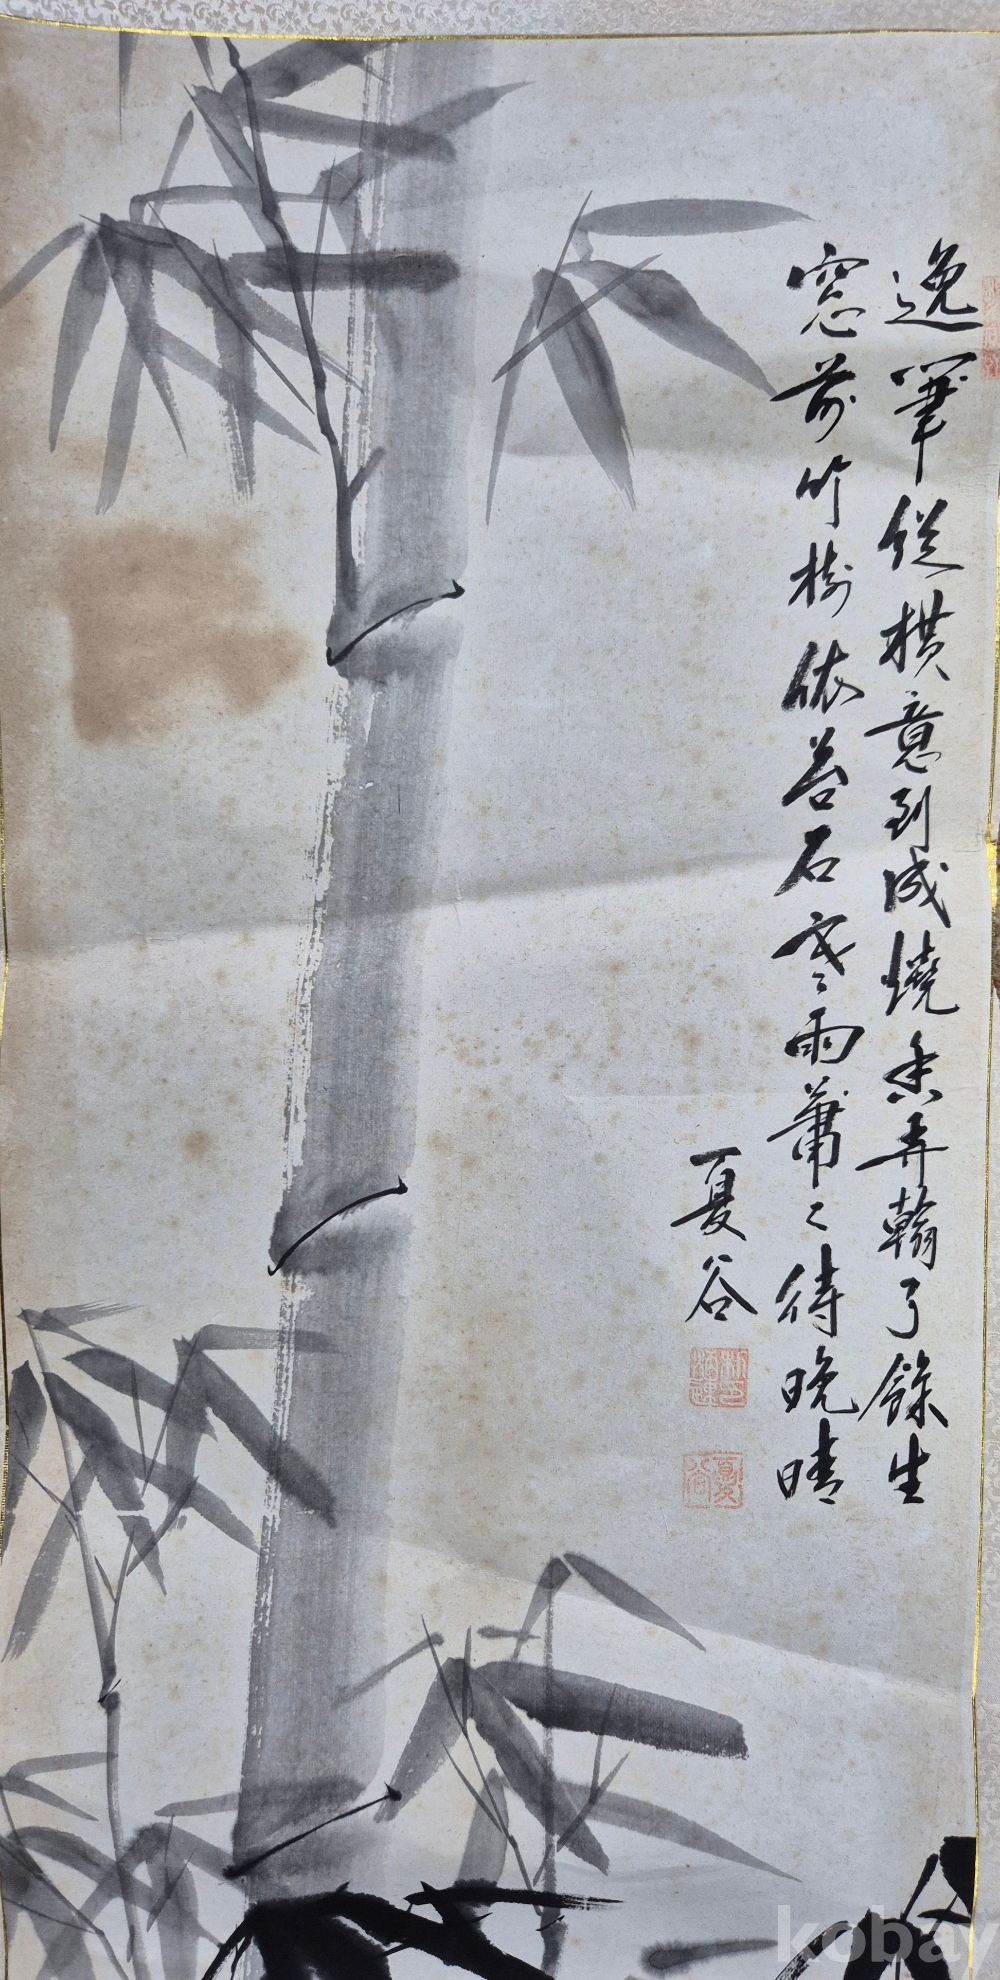 逸筆縱横意到成燒香弄翰了餘生
窓前竹樹依苔石寒雨蕭〻待晩晴
夏谷
夏谷
kobay